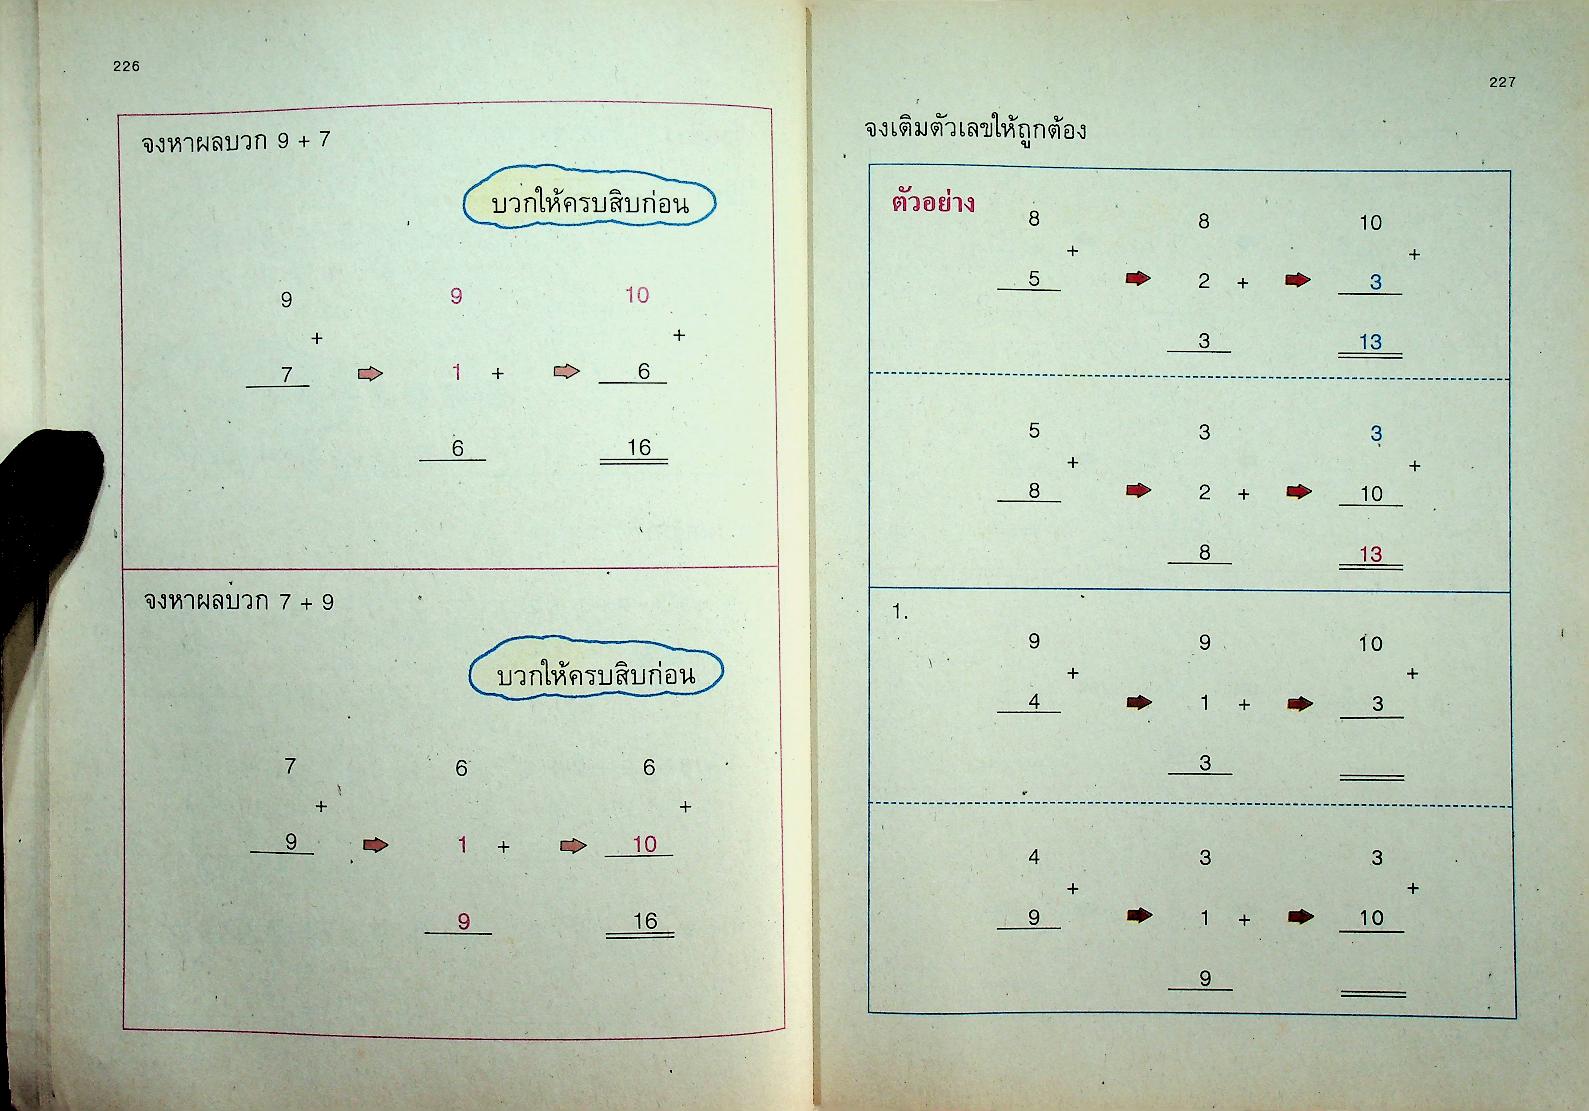 226
จงหาผลบวก 9 + 7
บวกให้ครบสิบก่อน
9 9 10
+ +
7 1 + 6
6 16
จงหาผลบวก 7 + 9
บวกให้ครบสิบก่อน
7 6 6
+ +
9 1 + 10
9 16
227
จงเติมตัวเลขให้ถูกต้อง
ตัวอย่าง
8 8 10
+ +
5 2 + 3
3 13
5 3 3
+ +
8 2 + 10
8 13
1.
9 9 10
+ +
4 1 + 3
3
4 3 3
+ +
9 1 + 10
9